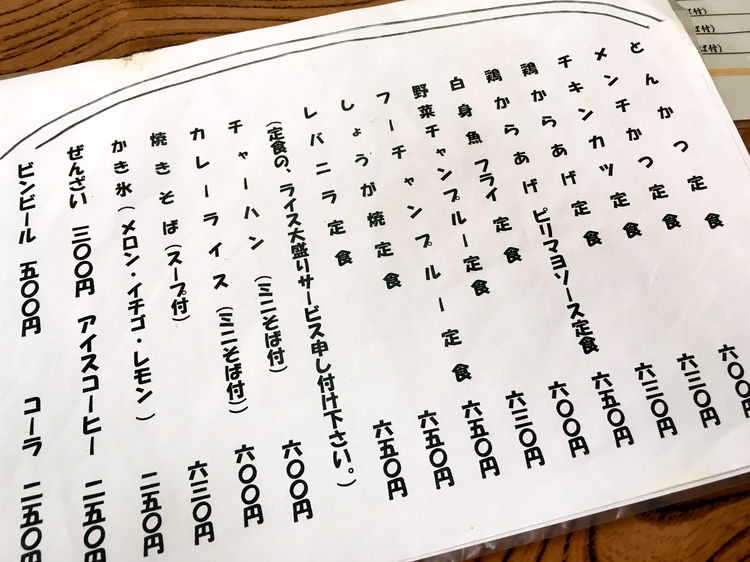 とんかつ定食
メンチかつ定食 六〇〇円
チキンカツ定食 六三〇円
鶏からあげ定食 六三〇円
鶏からあげピリマヨソース定食 六五〇円
白身魚フライ定食 六〇〇円
野菜チャンプルー定食 六三〇円
フーチャンプルー定食 六五〇円
しょうが焼定食 六五〇円
レバニラ定食 六五〇円
(定食の、ライス大盛りサービス申し付け下さい。)
チャーハン (ミニそば付) 六〇〇円
カレーライス (ミニそば付) 六〇〇円
焼きそば (スープ付) 六三〇円
かき氷 (メロン・イチゴ・レモン) 二五〇円
ぜんざい 三〇〇円 アイスコーヒー 二五〇円
ビンビール 五〇〇円 コーラ 二五〇円